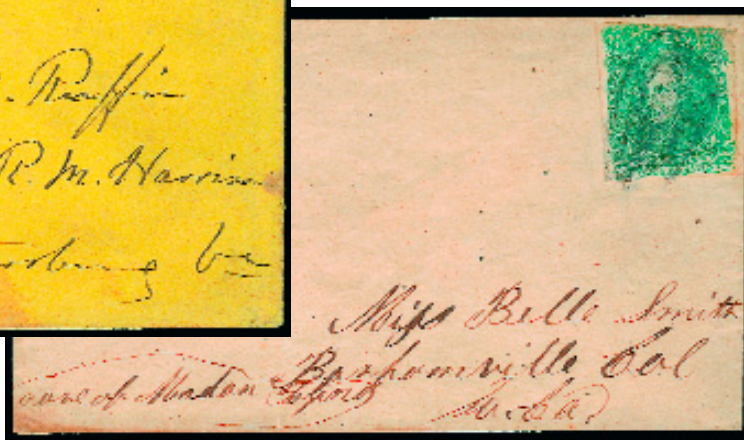 Ruffin
R. M. Harrison
Va
Miss Belle Smith
Barhamville Col
So. Ca.
care of Madam